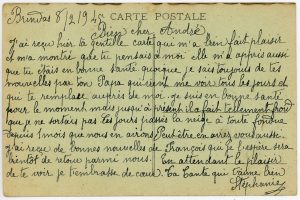 Brindas 8/2/19
CARTE POSTALE
Bien cher André
J'ai reçu hier ta gentille carte qui m'a bien fait plaisir
et m'a montré que tu pensais à moi elle m'a appris aussi
que tu étais en bonne santé quoique je sais toujours de tes
nouvelles par ton Papa qui vient me voir tous les jours et
qui te remplace auprès de moi. Je suis en bonne santé
pour le moment mais jusqu'à présent il a fait tellement froid
que je ne sortais pas ces jours passés la neige a toute fondue
depuis 1 mois que nous en avions Peut être en avez vous aussi.
J'ai reçu de bonnes nouvelles de François qui je l'espère sera
bientôt de retour parmi nous. En attendant le plaisir
de te voir je t'embrasse de cœur. Ta tante qui t'aime bien
Stéphanie